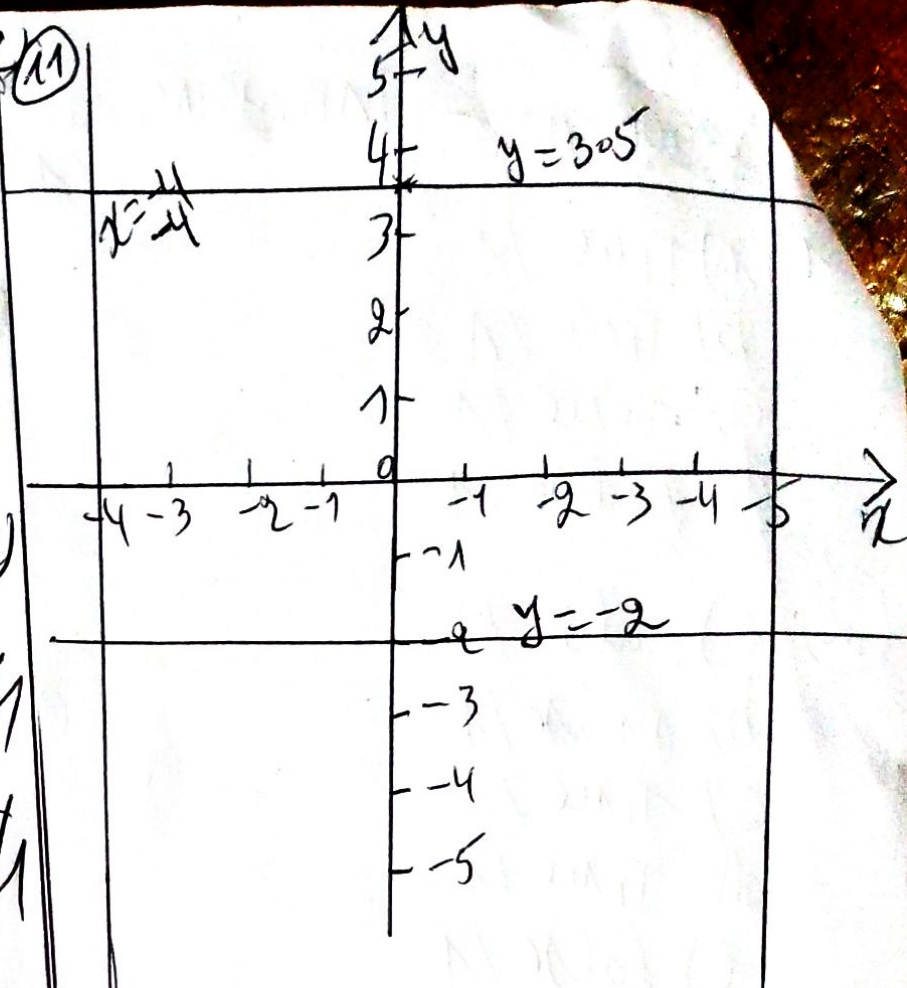 11
y
5
4
y = 3.5
x = -4
3
2
1
0
-4 -3 -2 -1 -1 -2 -3 -4 5
x
-1
-2 y = -2
-3
-4
-5